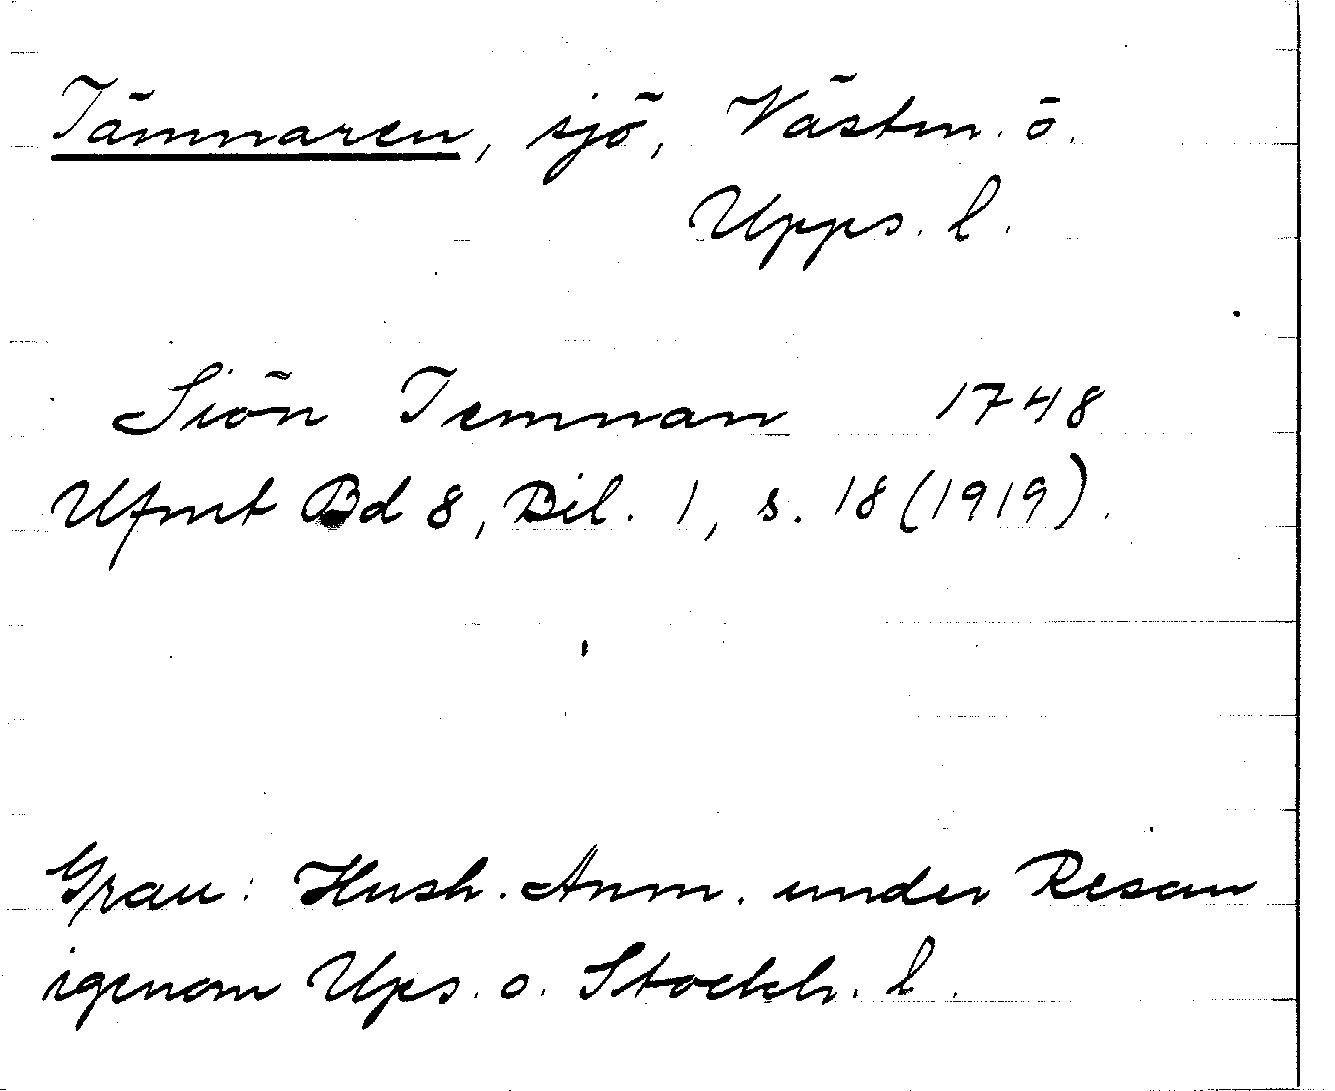 Tämnaren, sjö, Västm. o.
Upps. l.
Siön Temnan 1748
Ufmt Bd 8, Bil. 1, s. 18 (1919).
Grau: Hush. Anm. under Resan
igenom Ups. o. Stockh. l.